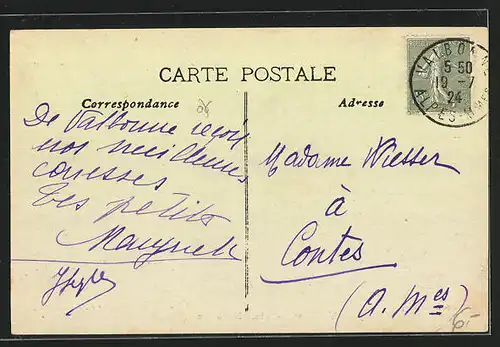 CARTE POSTALE
Correspondance
Adresse
VALBONNE
5 50
19 - 7
24
ALPES-Mmes
De Valbonne reçois
nos meilleures
caresses
Tes petits
Madame Wiesser
à
Contes
(A. Mes)
6.-